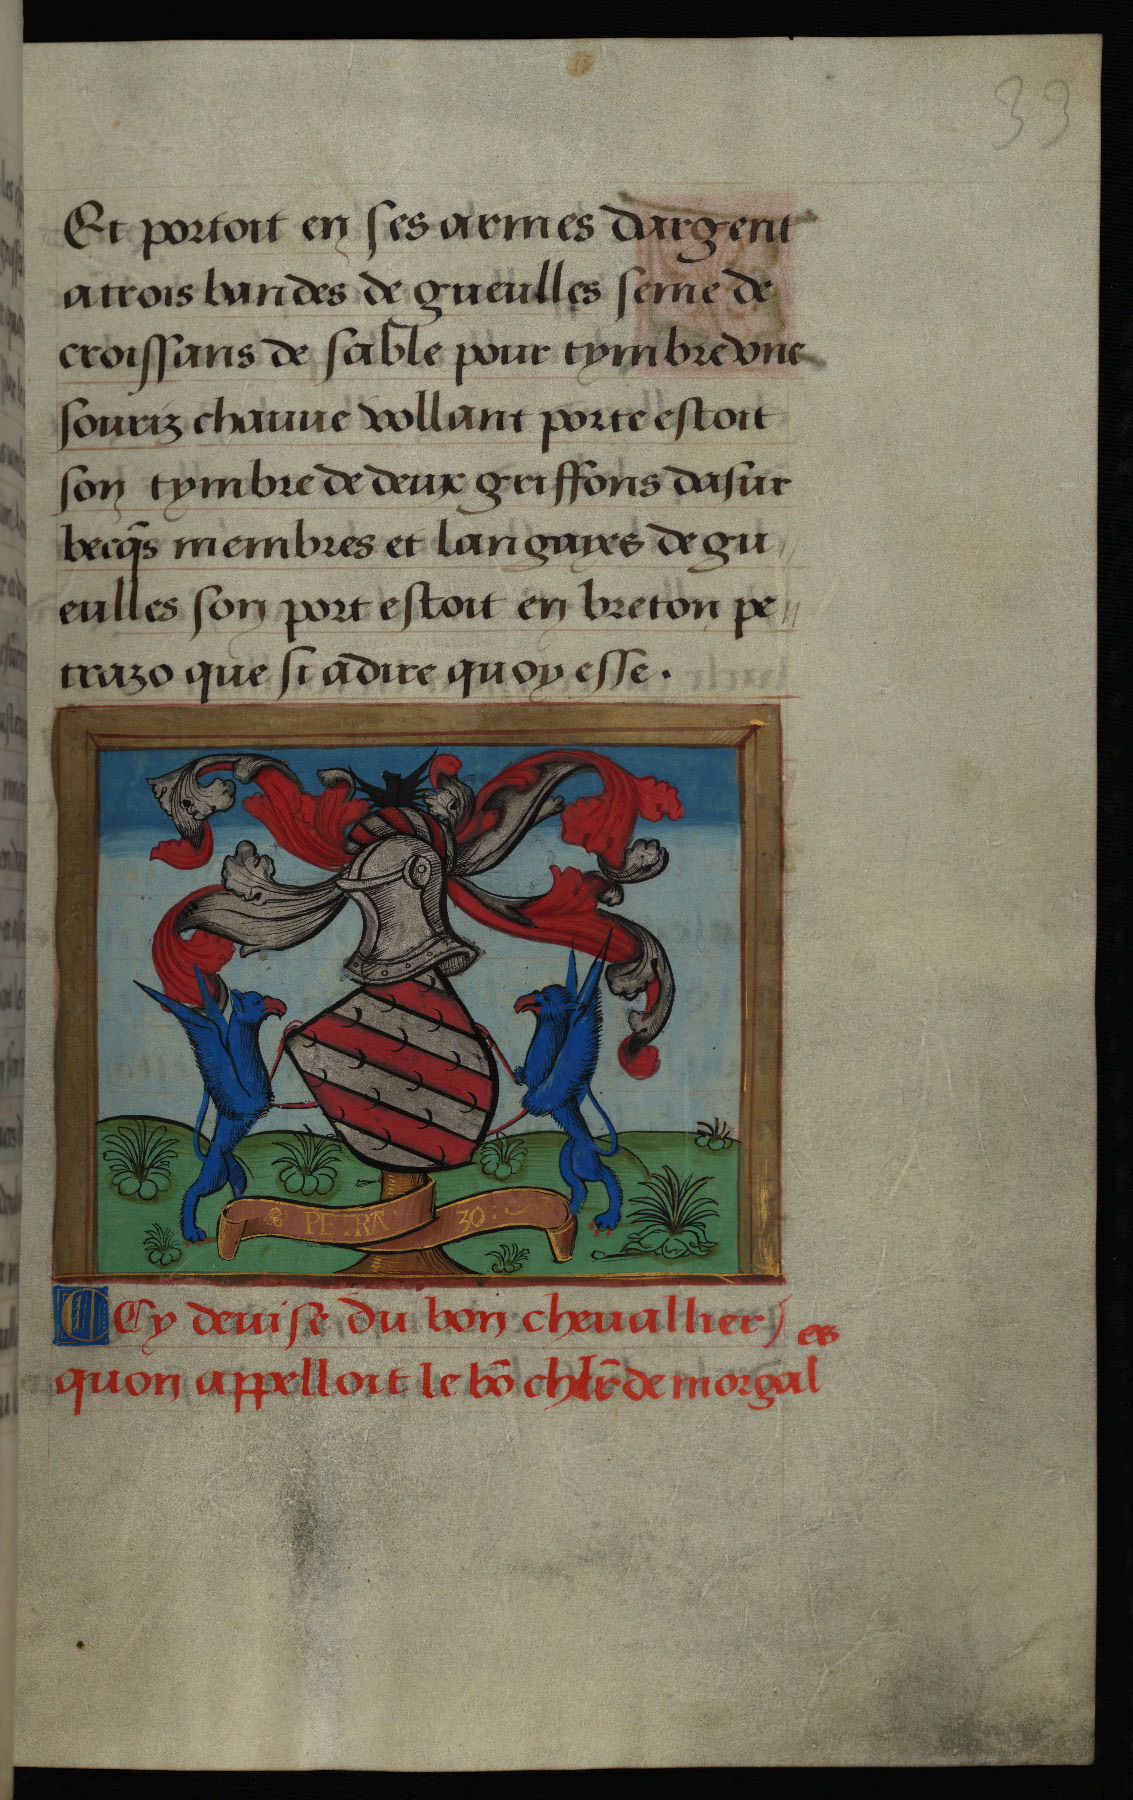 33
Et portoit en ses armes dargent
a trois bandes de gueulles seme de
croissans de sable pour tymbre vne
souriz chauue vollant porte estoit
son tymbre de deux griffons dasur
becq̄s membres et langayes de gu
eulles son port estoit en breton pe
trazo que si adire quoy esse.
PETRA 30
Cy deuise du bon cheuallier
quon appelloit le bō chlr̄ de morgal
es